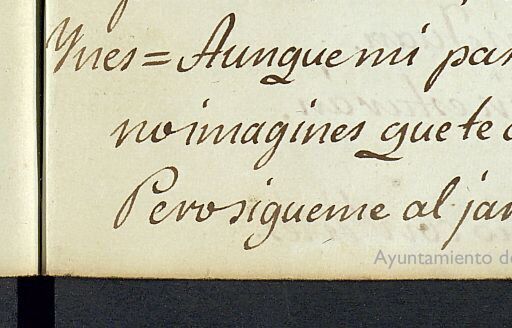 Ynes = Aunque mi pas
no imagines que te
Pero sigueme al jar
Ayuntamiento de